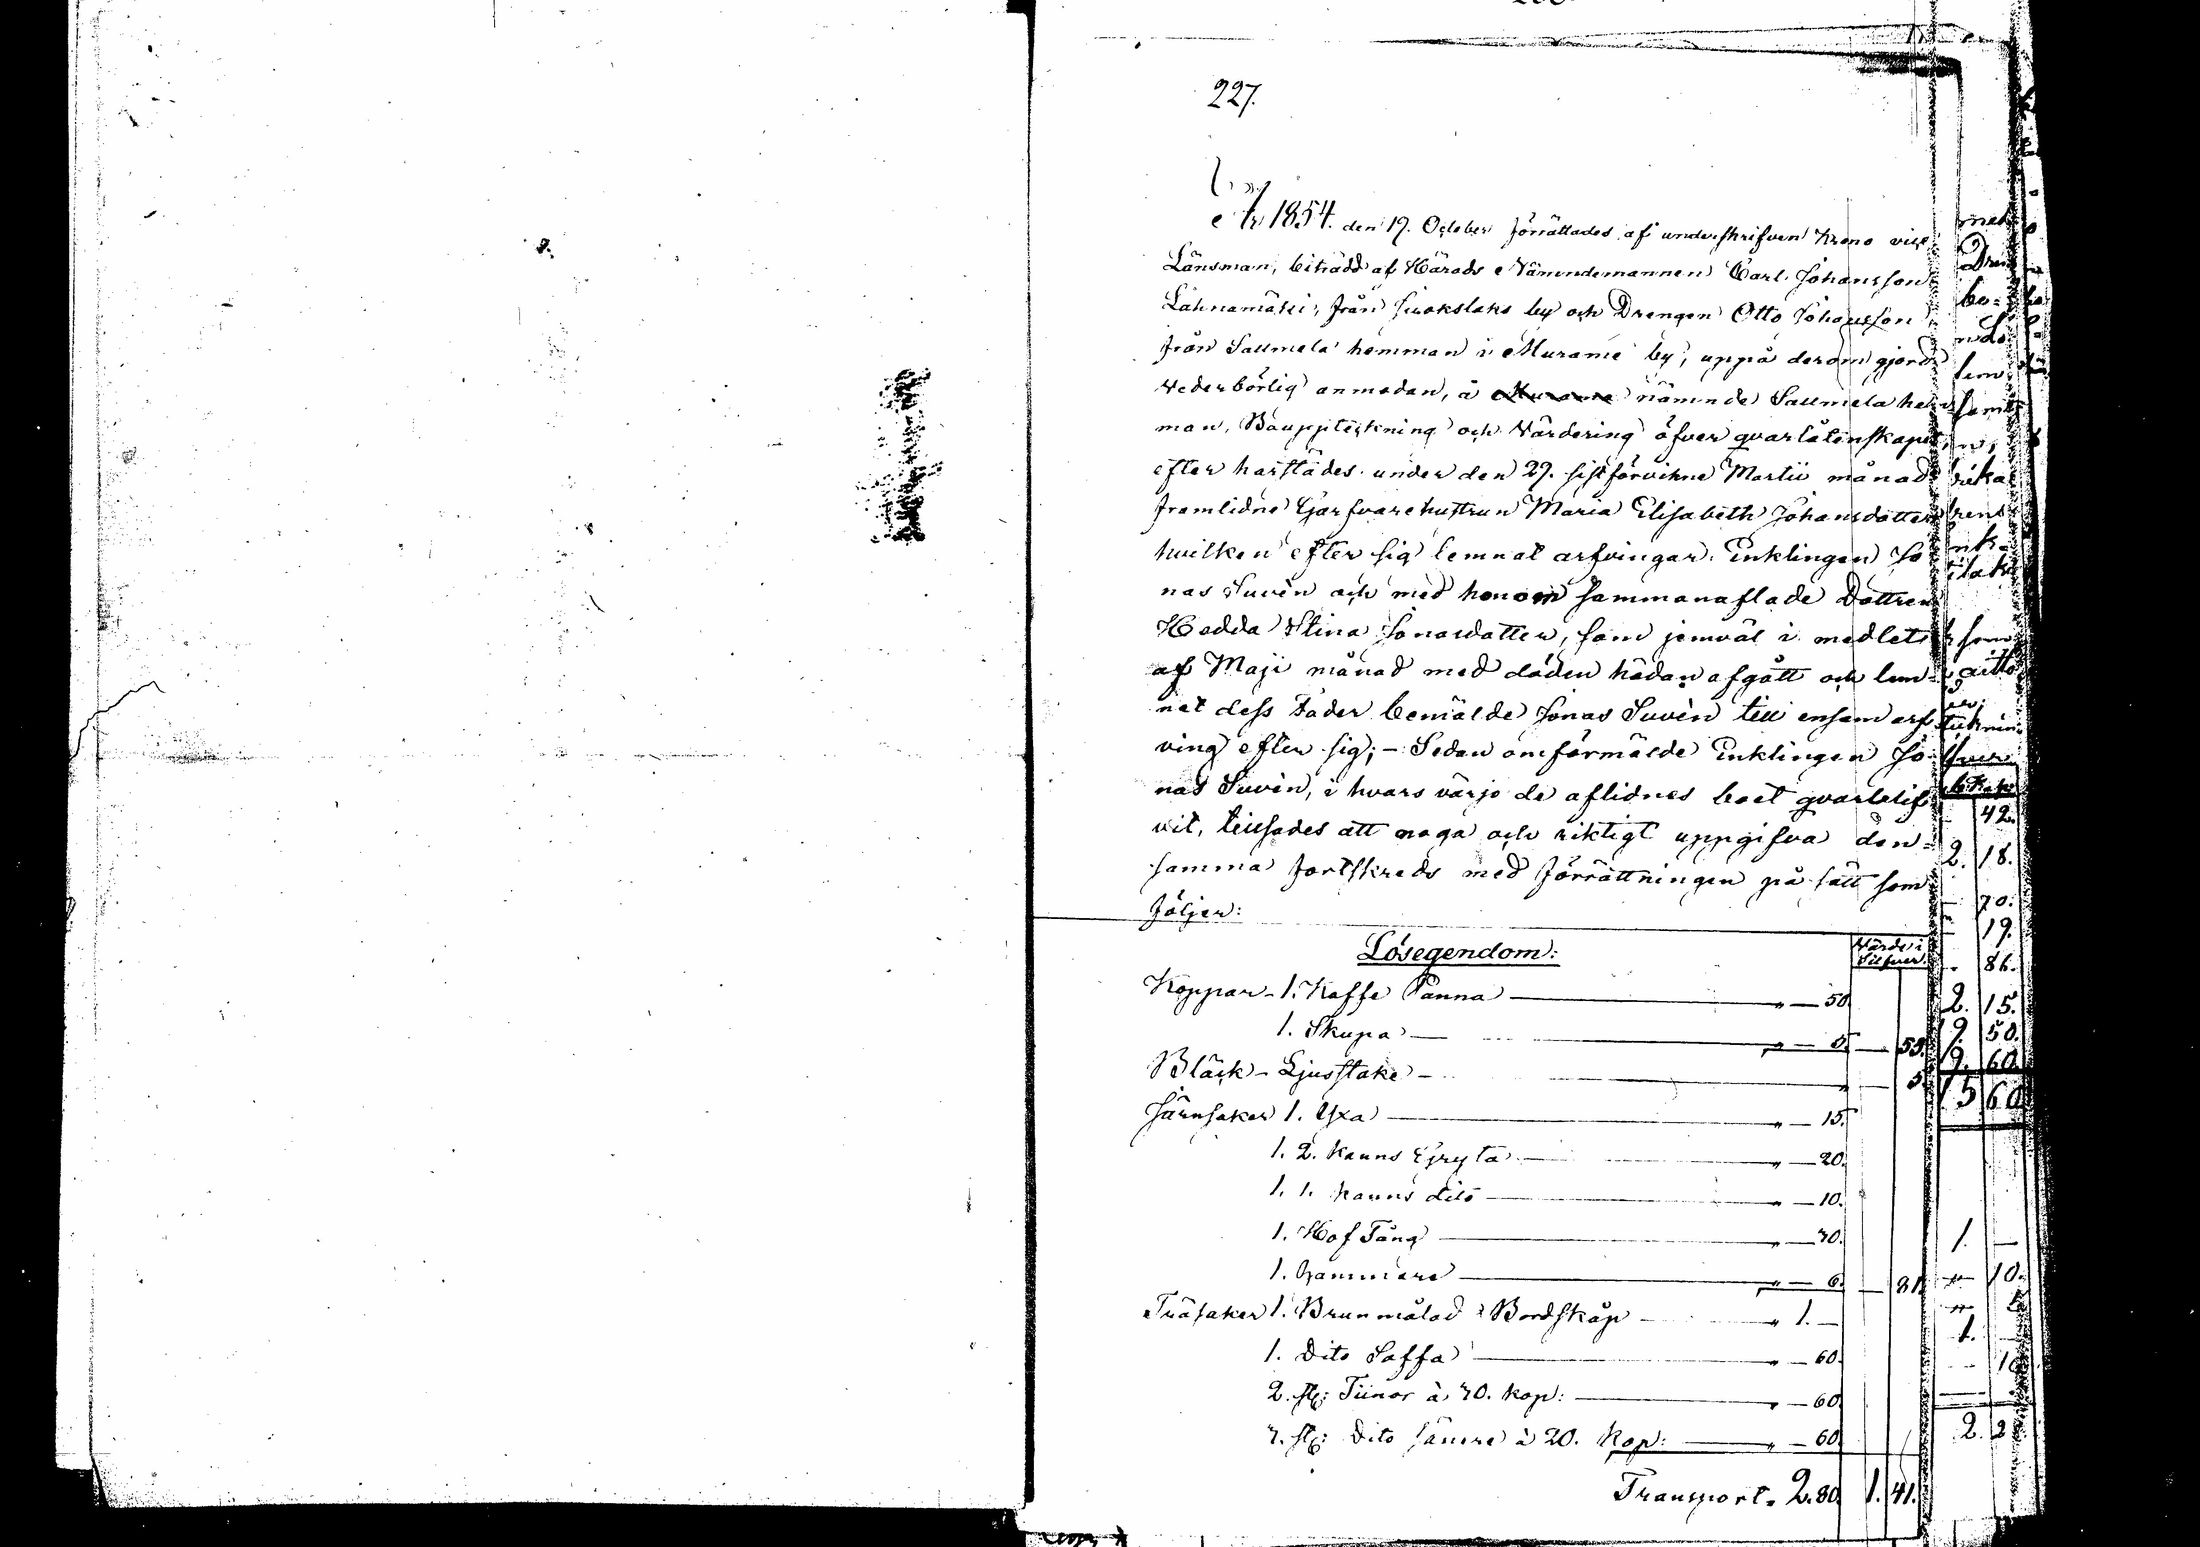 227.
År 1854. den 19. October förrättades af underskrifven Krono vice
Länsman, biträdd af Härads Nämndemannen Carl Johansson
Lähnamäki, från Suokslaks by och Drengen Otto Johansson
från Saumela hemman i Murame by, uppå derom gjord
vederbörlig anmodan, å nämnde Saumela hem
man, Bouppteckning och Värdering öfver qvarlåtenskapet
efter härstädes under den 29. sistförvikne Martii månad
framlidne Garfvarehustrun Maria Elisabeth Johansdotter
hvilken efter sig lemnat arfvingar. Enklingen Jo
nas Suvèn och med honom sammanaflade Dottren
Hedda Stina Jonasdotter, som jemväl i medlet
af Maji månad med döden hädan afgått och lem-
nat dess Fader bemälde Jonas Suvèn till ensam arf
ving efter sig; - Sedan omförmälde Enklingen Jo-
nas Suvèn, i hvars värjo de aflidnes boet qvarblif
vit, tillsades att noga och riktigt uppgifva den=
samma fortskreds med förrättningen på sätt som
följer:
Lösegendom: Värde i Silfver.
Koppar - 1. Kaffe Panna — " — 50.
1. Skupa — " — 5. — 55.
Bläck - Ljusstake — " 5.
Järnsaker 1. Yxa — " — 15.
1. 2. kanns Gryta — " — 20.
1. 1. kanns dito — " — 10.
1. Hof Tång — " — 30.
1. hammare — " — 6. — 81.
Träsaker 1. Brunmålad Bordskåp — " 1. —
1. Dito Saffa — " — 60.
2. st: Tiinor à 30. kop: — " — 60.
3. st: Dito sämre à 20. kop: — " — 60.
Transport. 2.80. 1. 41.
42.
2. 18.
70.
19.
86.
2. 15.
9. 50.
9. 60.
15 60
1. —
10.
1.
10
2. 2